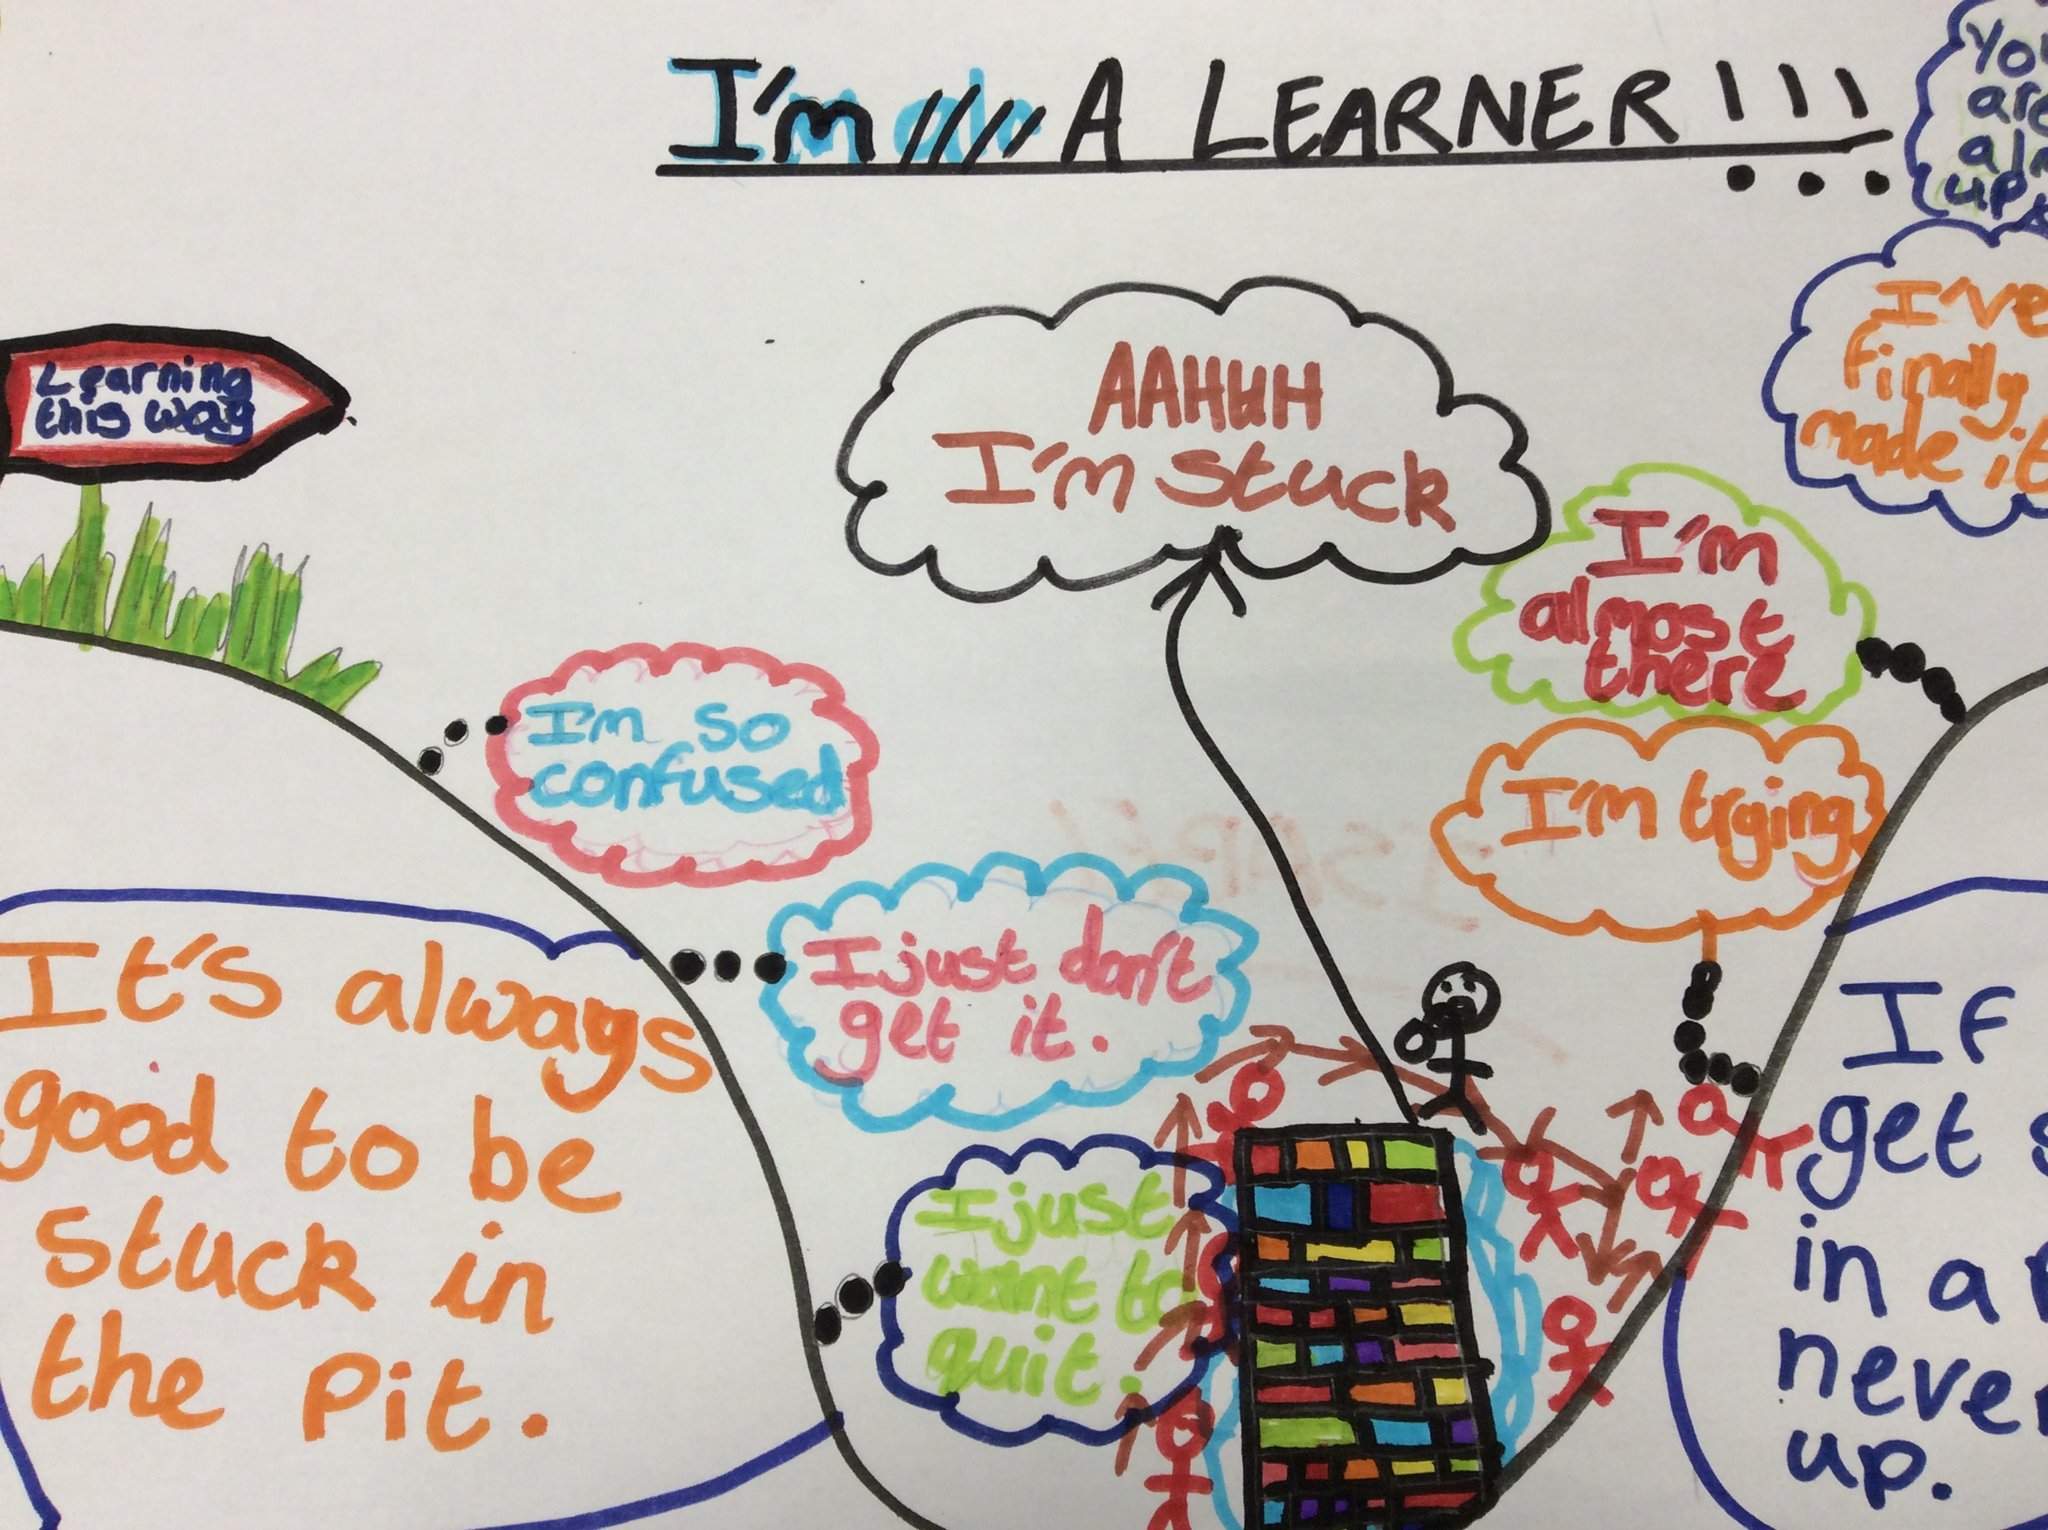 I'm A LEARNER!!!
You
are
up
I've
finally
made it
Learning
this way
AAHHH
I'm stuck
I'm
almost
there
I'm so
confused
I'm trying
I just don't
get it.
It's always
good to be
stuck in
the Pit.
I just
want to
quit.
If
get
in a
never
up.